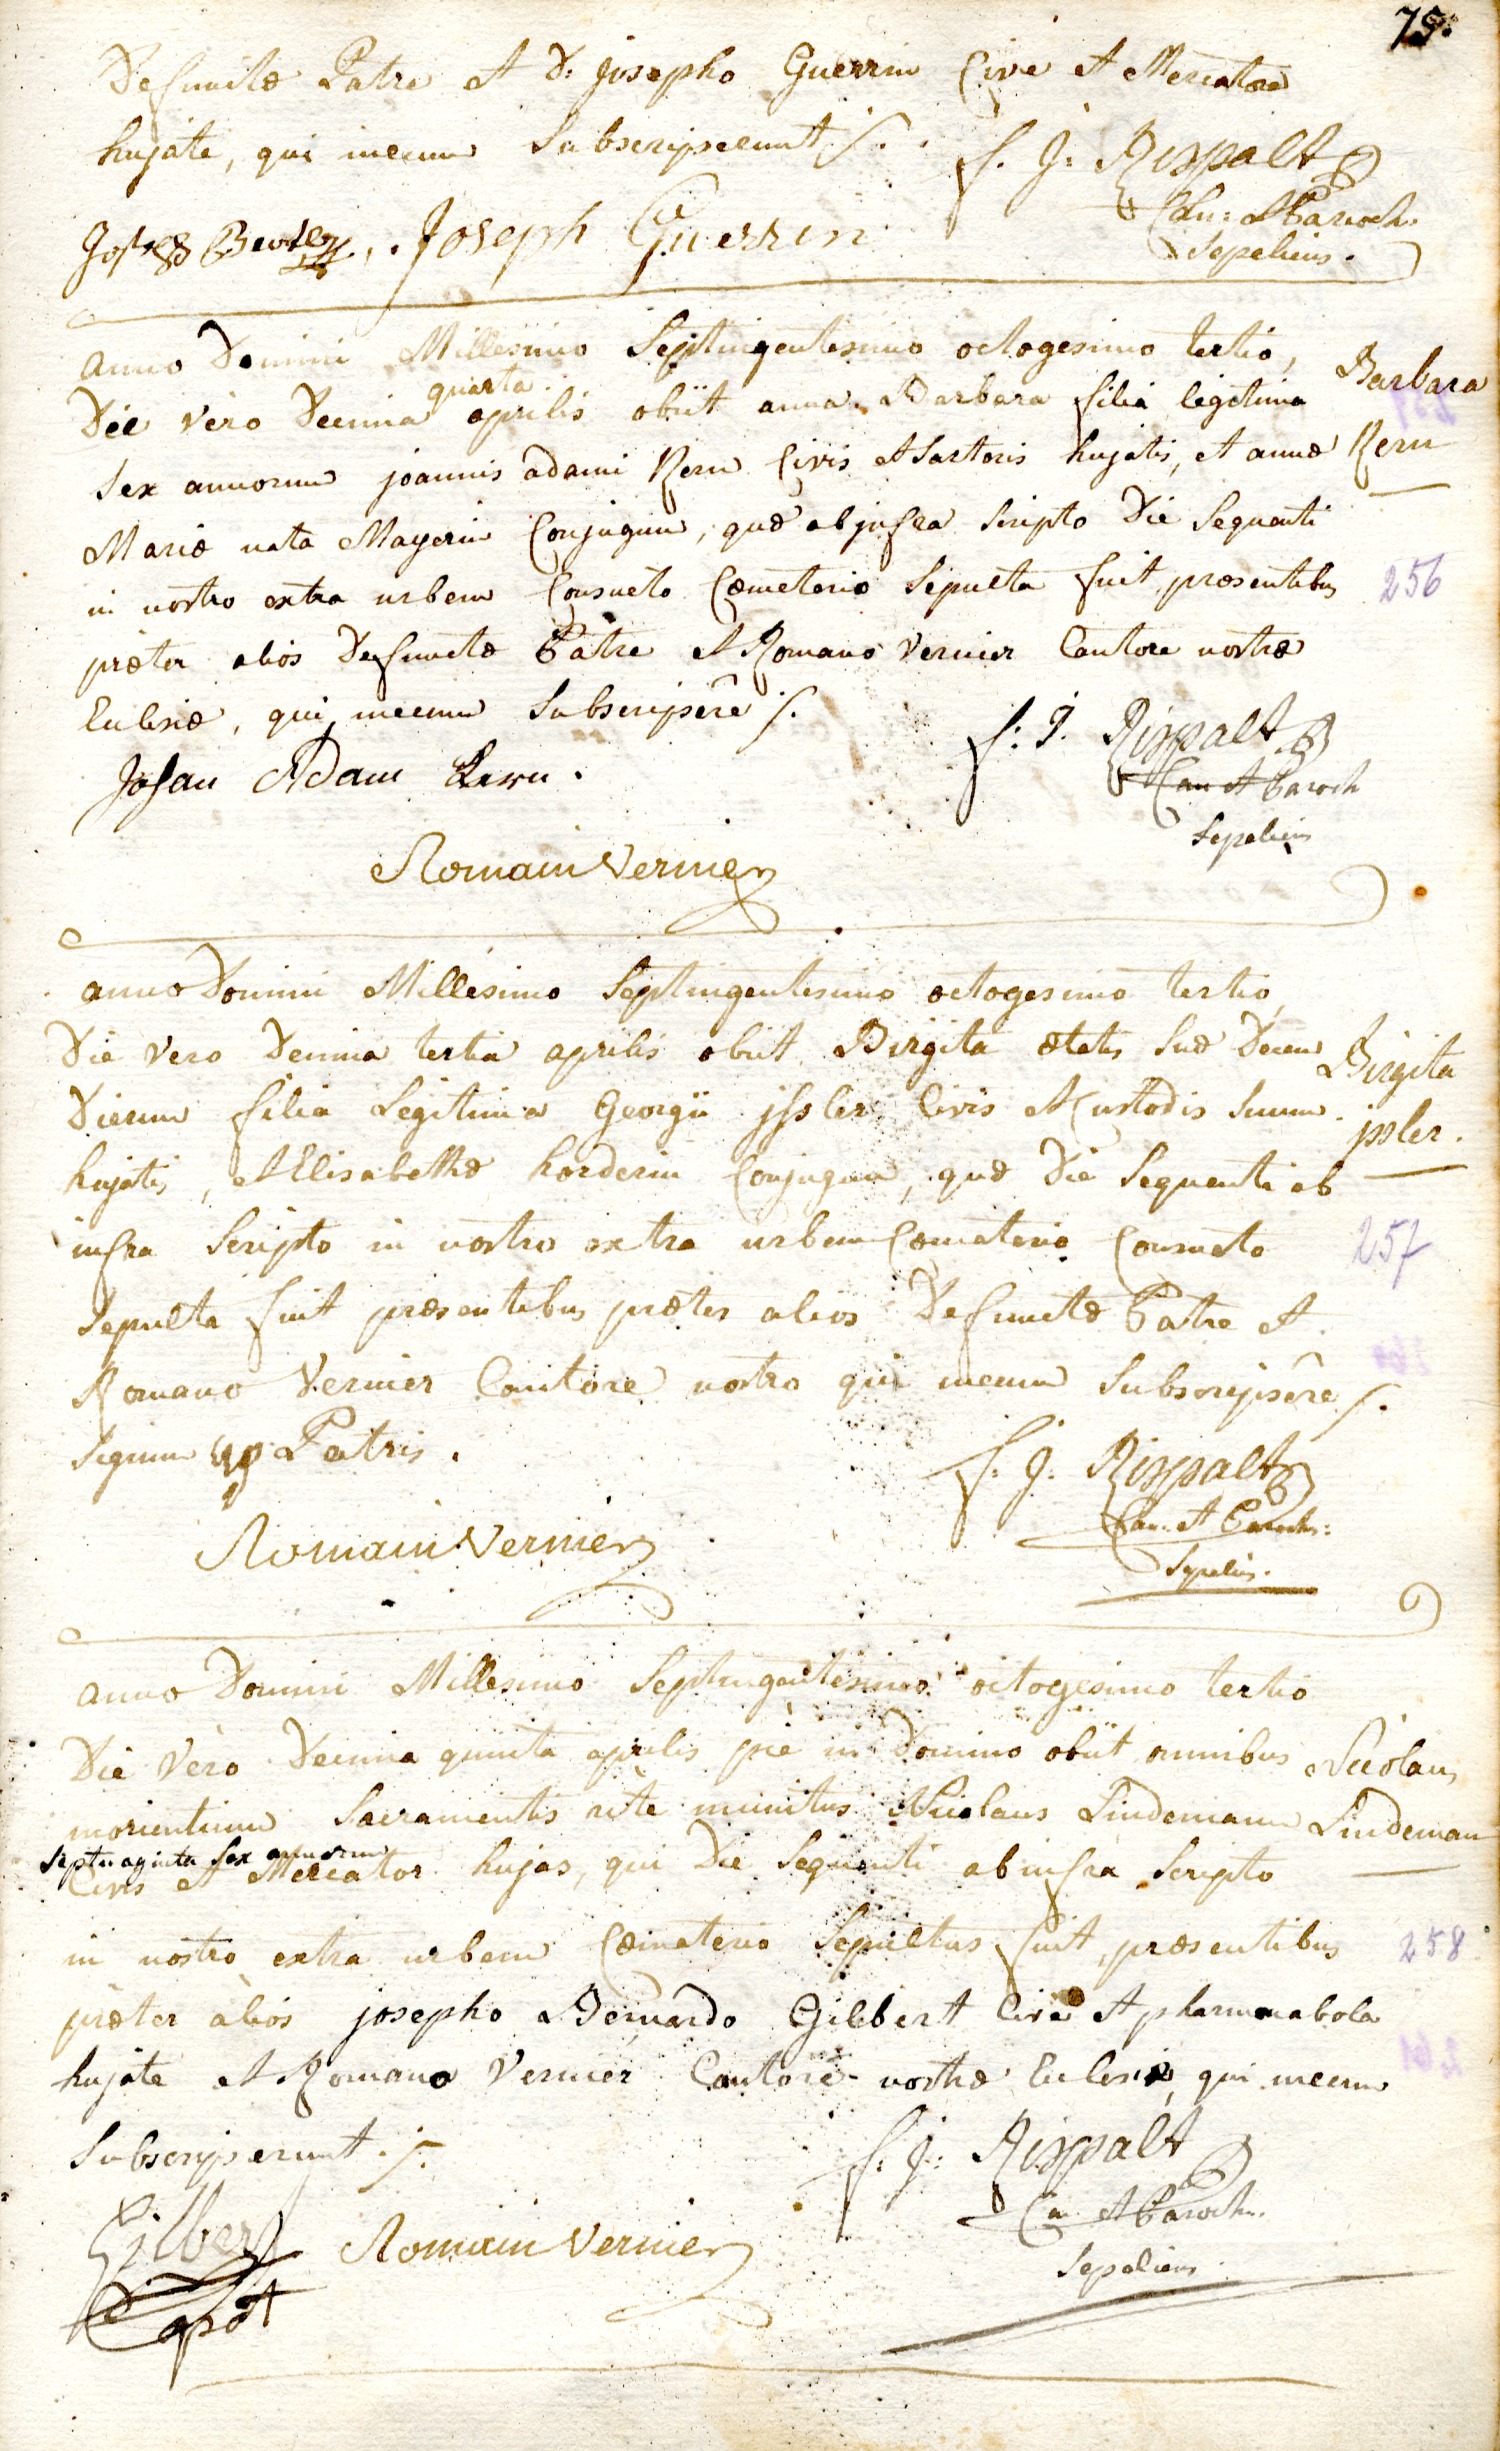 75.
Defunctæ Patre et D: josepho Guerrin Cive et Mercatore
hujate, qui mecum Subscripserunt ./.
f. J: Rispalt
Can: et Paroch:
Sepeliens.
Joseph Guerrin
anno Domini Millesimo Septingentesimo octogesimo tertio,
quarta
Die vero Decima aprilis obiit anna Barbara filia legitima
Barbara
Kern
Sex annorum joannis adami Kern Civis et Sartoris hujatis, et annæ
Mariæ nata Mayerin Conjugum, quæ ab infra Scripto Die Sequenti
in nostro extra urbem Consueto Cœmeterio Sepulta fuit, præsentibus
256
præter alios Defunctæ Patre et Romano Vernier Cantore nostræ
Eclesiæ, qui mecum Subscripsêre ./.
f: J. Rispalt
Can et Paroch
Sepeliens
Johan Adam Kern.
Romain Vernier
anno Domini Millesimo Septingentesimo octogesimo tertio,
Die Vero Decima tertia aprilis obiit Birgita ætatis Suæ Decem
Birgita
jssler.
Dierum filia Legitima Georgii jssler Civis et Custodis Suum
hujatis, et Elisabethæ horderin Conjugum, quæ Die Sequenti ab
infra Scripto in nostro extra urbem Cœmeterio Consueto
257
Sepulta fuit præsentibus præter alios Defunctæ Patre et
Romano Vernier Cantore nostro qui mecum Subscripsêre ./.
Signum Patris.
f: J: Rispalt
Can: et Paroch:
Sepeliens.
Romain Vernier
anno Domini Millesimo Septingentesimo octogesimo tertio
Die Vero Decima quinta aprilis piè in Domino obiit omnibus
Nicolaus
Lindeman
morientium Sacramentis rite munitus Nicolaus Lindemann
Septuaginta Sex annorum
Civis et Mercator hujas, qui Die Sequenti ab infra Scripto
in nostro extra urbem Cœmeterio Sepultus fuit, præsentibus
258
præter alios josepho Bernardo Gilbert Cive et pharmacabola
hujate et Romano Vernier Cantore nostræ Eclesiæ, qui mecum
Subscripserunt ./.
f: J: Rispalt
Can et Paroch.
Sepeliens
Gilbert
Romain Vernier